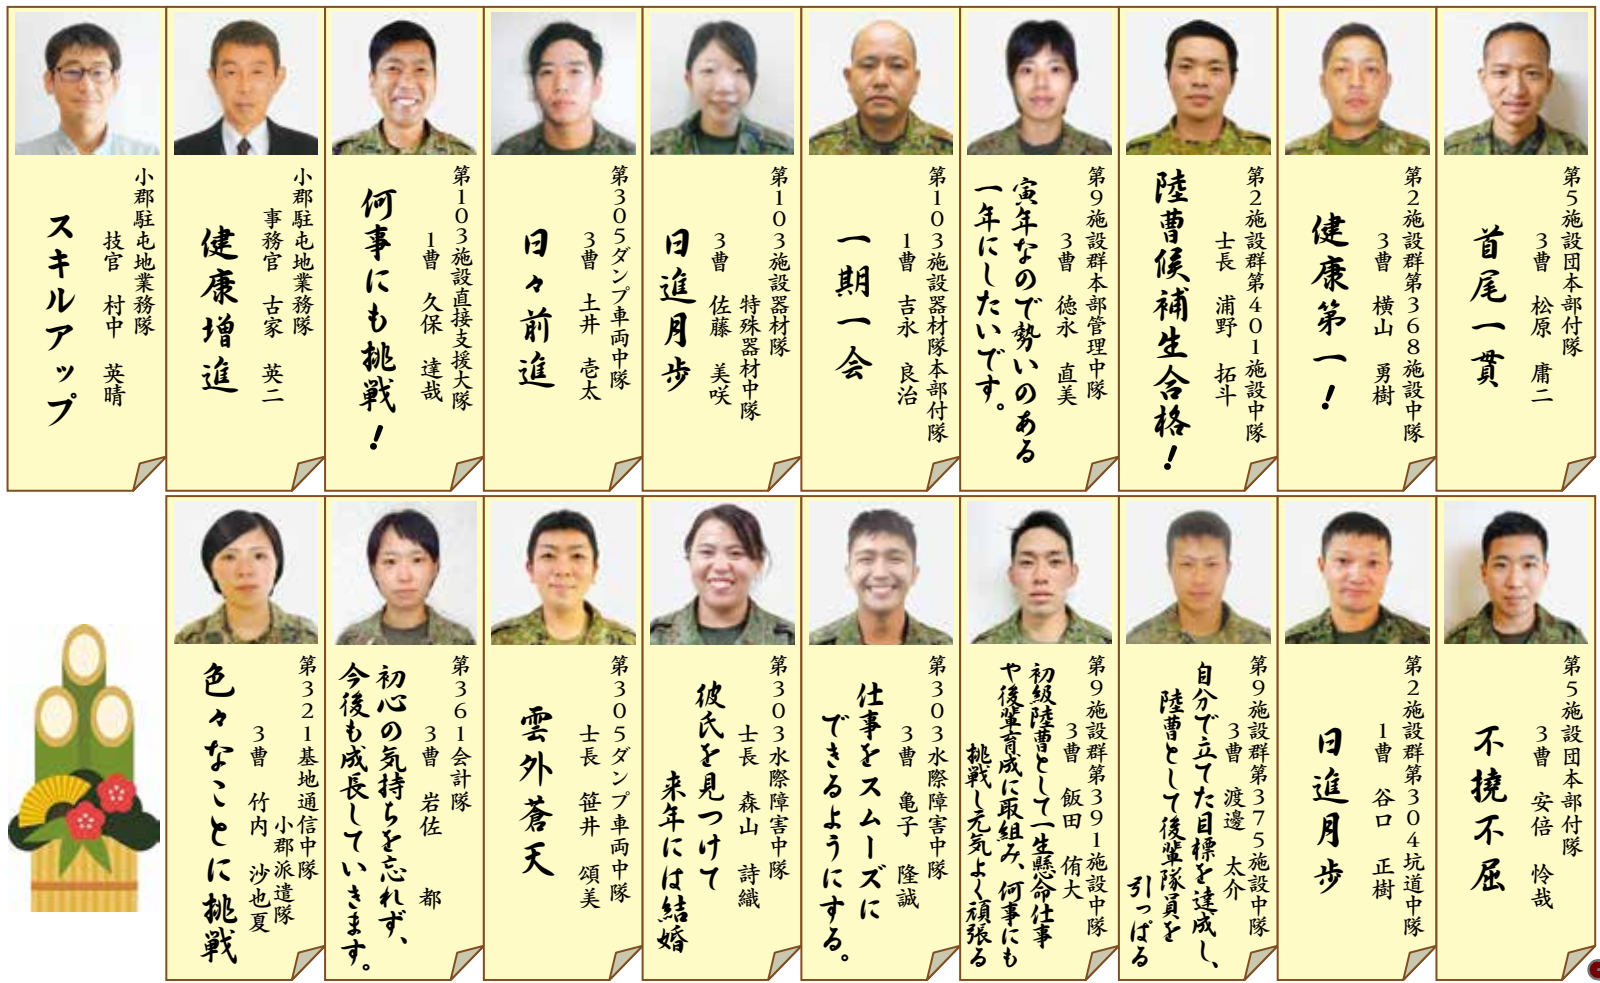 第5施設団本部付隊
3曹 松原 庸二
首尾一貫
第2施設群第368施設中隊
3曹 横山 勇樹
健康第一!
第2施設群第401施設中隊
士長 浦野 拓斗
陸曹候補生合格!
第9施設群本部管理中隊
3曹 徳永 直美
寅年なので勢いのある
一年にしたいです。
第103施設器材隊本部付隊
1曹 吉永 良治
一期一会
第103施設器材隊
特殊器材中隊
3曹 佐藤 美咲
日進月歩
第305ダンプ車両中隊
3曹 土井 壱太
日々前進
第103施設直接支援大隊
1曹 久保 達哉
何事にも挑戦!
小郡駐屯地業務隊
事務官 古家 英二
健康増進
小郡駐屯地業務隊
技官 村中 英晴
スキルアップ
第5施設団本部付隊
3曹 安倍 怜哉
不撓不屈
第2施設群第304坑道中隊
1曹 谷口 正樹
日進月歩
第9施設群第375施設中隊
3曹 渡邊 太介
自分で立てた目標を達成し、
陸曹として後輩隊員を
引っぱる
第9施設群第391施設中隊
3曹 飯田 侑大
初級陸曹として一生懸命仕事
や後輩育成に取組み、何事にも
挑戦し元気よく頑張る
第303水際障害中隊
3曹 亀子 隆誠
仕事をスムーズに
できるようにする。
第303水際障害中隊
士長 森山 詩織
彼氏を見つけて
来年には結婚
第305ダンプ車両中隊
士長 笹井 頌美
雲外蒼天
第361会計隊
3曹 岩佐 都
初心の気持ちを忘れず、
今後も成長していきます。
第321基地通信中隊
小郡派遣隊
3曹 竹内 沙也夏
色々なことに挑戦